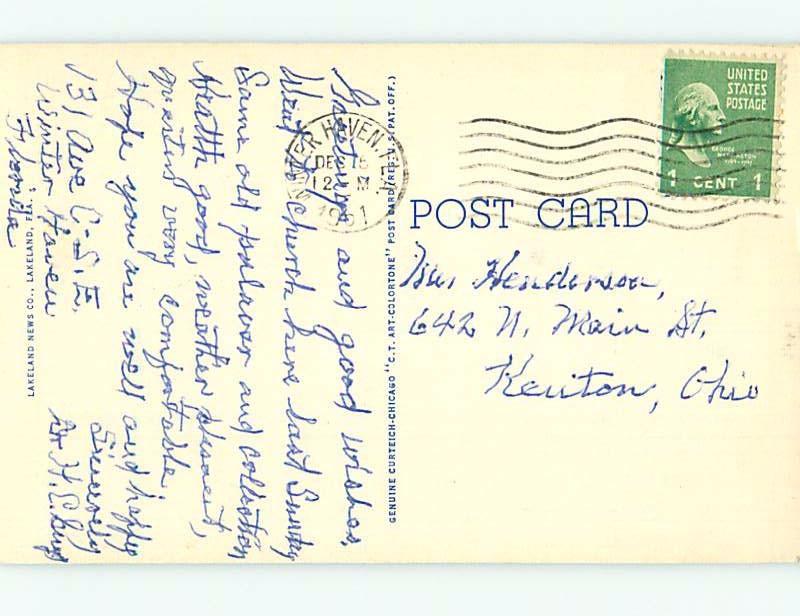 Greetings and good wishes.
Went to church here last Sunday
Same old palaver and collection
Health good, weather pleasant,
quarters very comfortable.
Hope you are well and happy
Sincerely
131 Ave C. S. E.
Winter Haven
Florida
LAKELAND NEWS CO., LAKELAND, FLA.
GENUINE CURTEICH-CHICAGO "C. T. ART-COLORTONE" POST CARD (REG. U.S. PAT. OFF.)
WINTER HAVEN
DEC 15
12 M
1951
UNITED
STATES
POSTAGE
GEORGE
WASHINGTON
1 CENT 1
POST CARD
Henderson,
642 N. Main St.
Kenton, Ohio